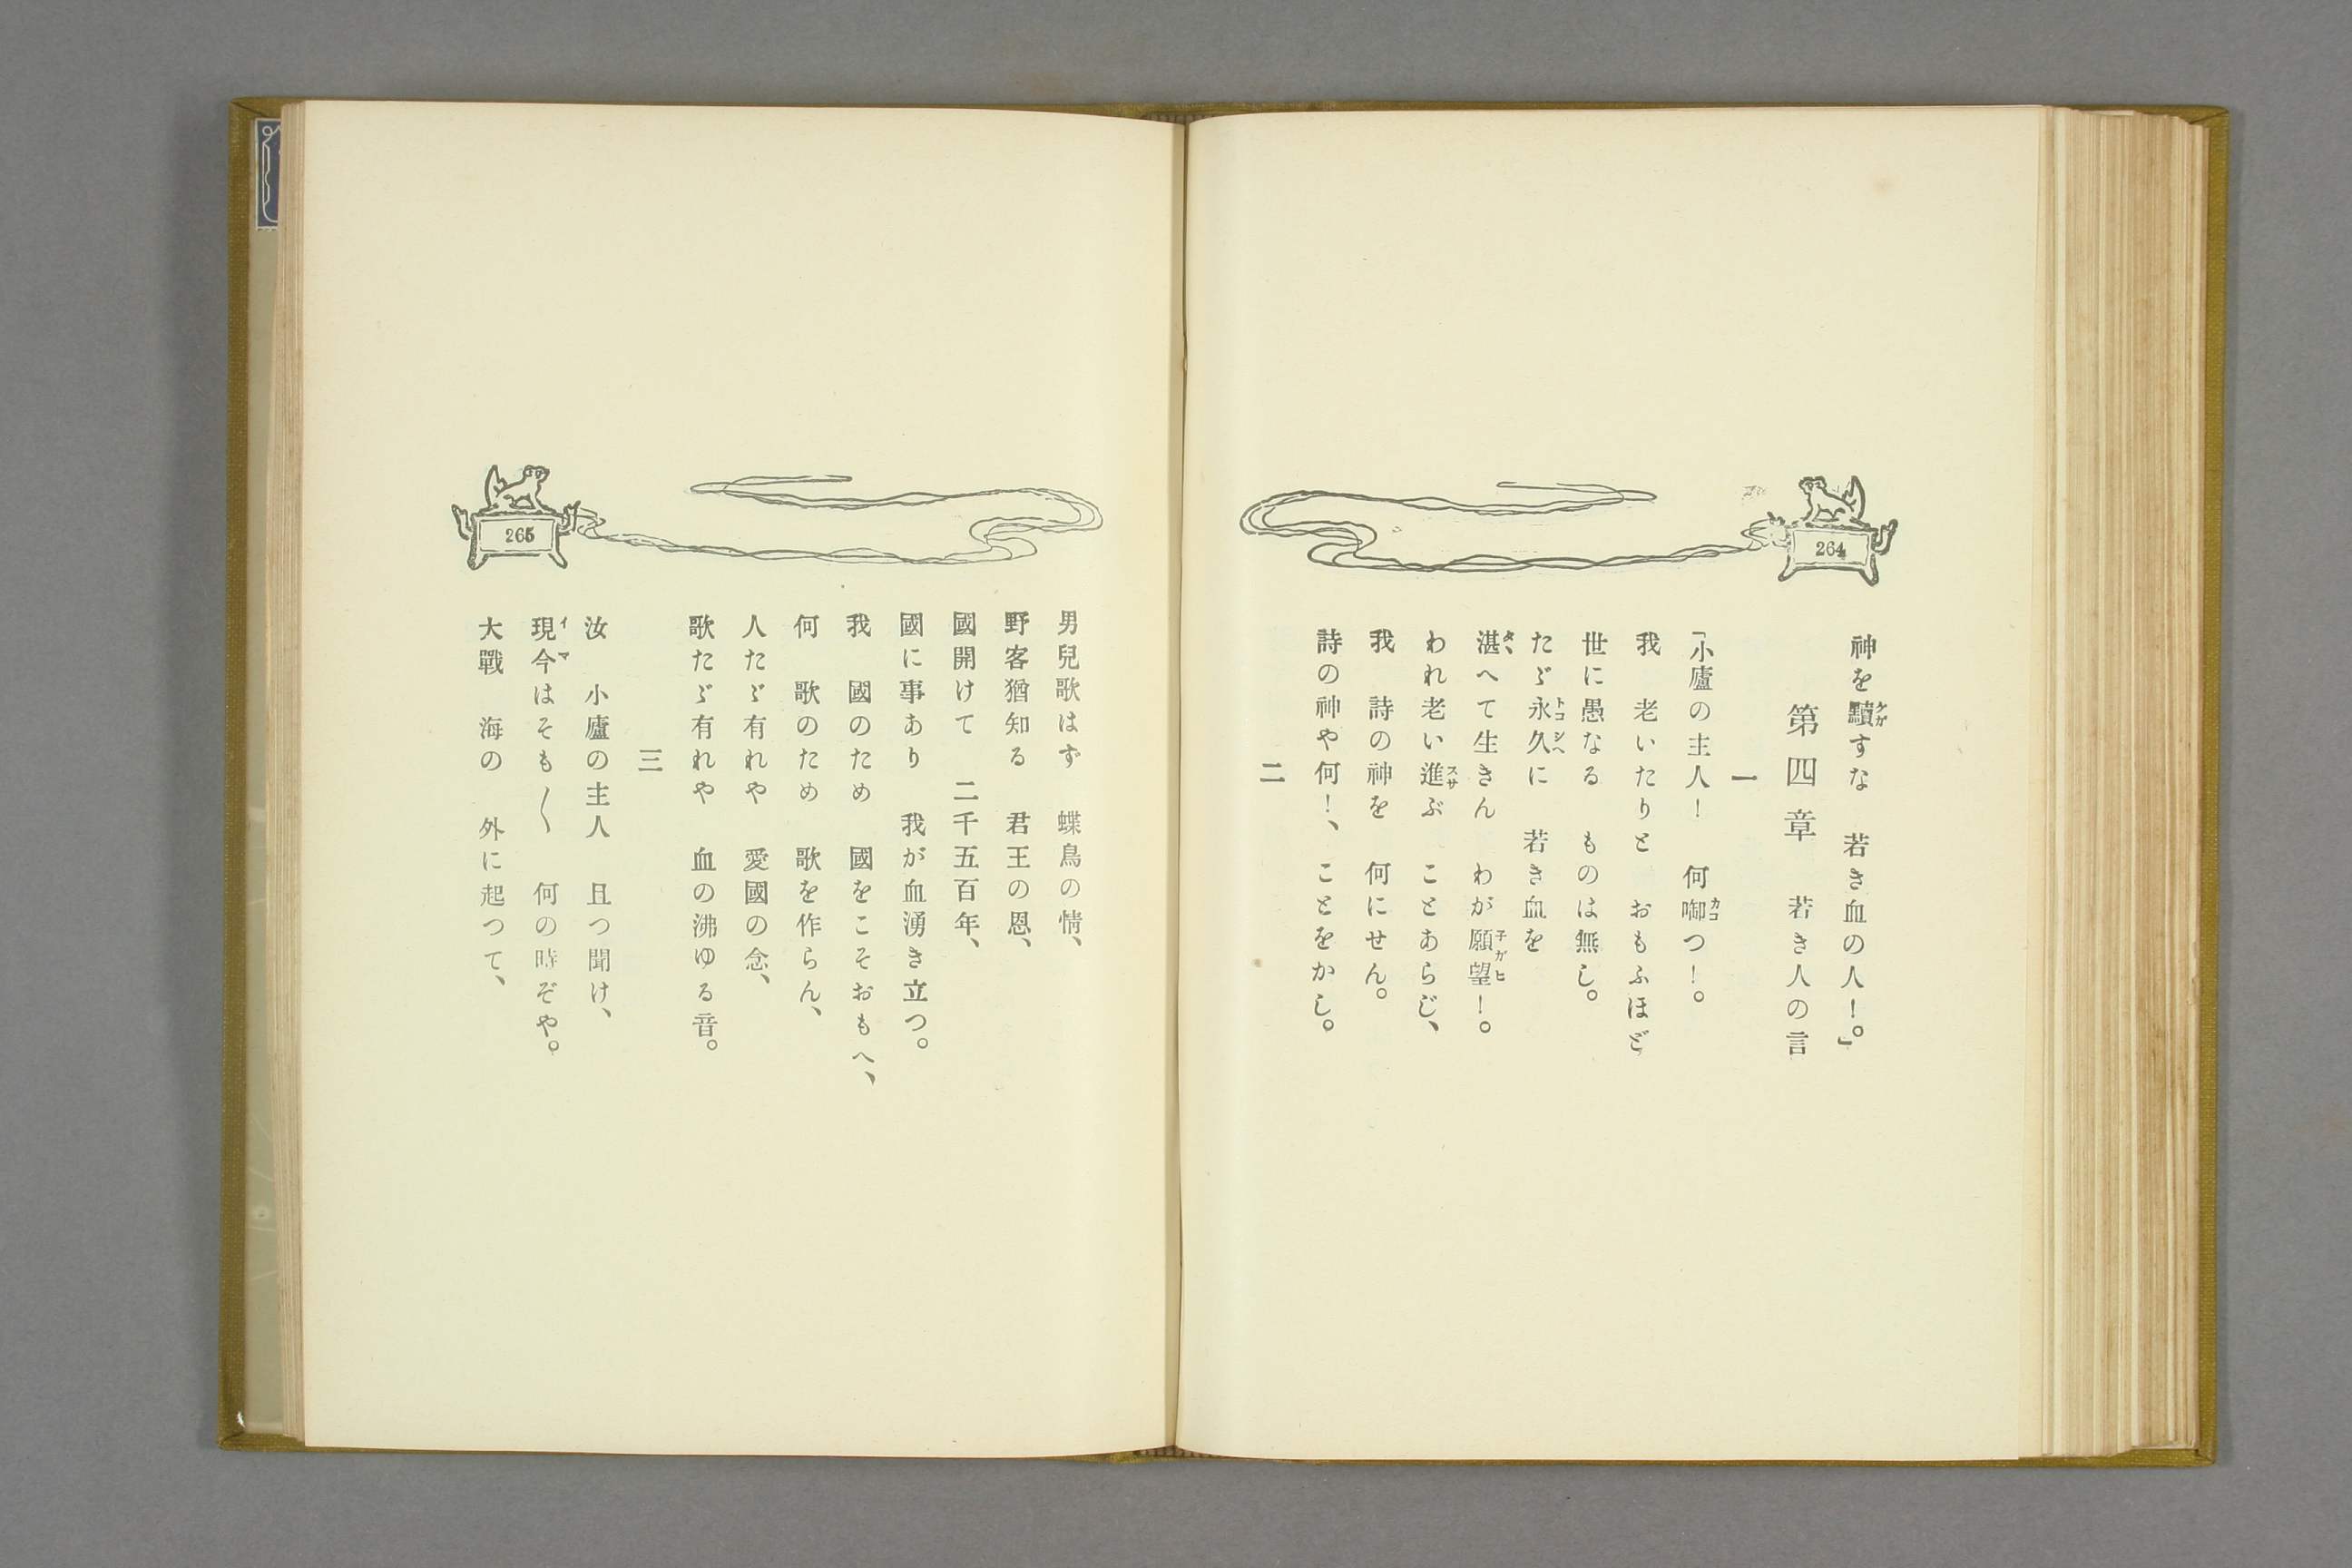 264
神を黷すな　若き血の人！。」
第四章　若き人の言
一
「小廬の主人！　何啣つ！。
我　老いたりと　おもふほど
世に愚なる　ものは無し。
たゞ永久に　若き血を
湛へて生きん　わが願望！。
われ老い進ぶ　ことあらじ、
我　詩の神を　何にせん。
詩の神や何！、ことをかし。
二
265
男兒歌はず　蝶鳥の情、
野客猶知る　君王の恩、
國開けて　二千五百年、
國に事あり　我が血湧き立つ。
我　國のため　國をこそおもへ、
何　歌のため　歌を作らん、
人たゞ有れや　愛國の念、
歌たゞ有れや　血の沸ゆる音。
三
汝　小廬の主人　且つ聞け、
現今はそも〱　何の時ぞや。
大戰　海の　外に起つて、